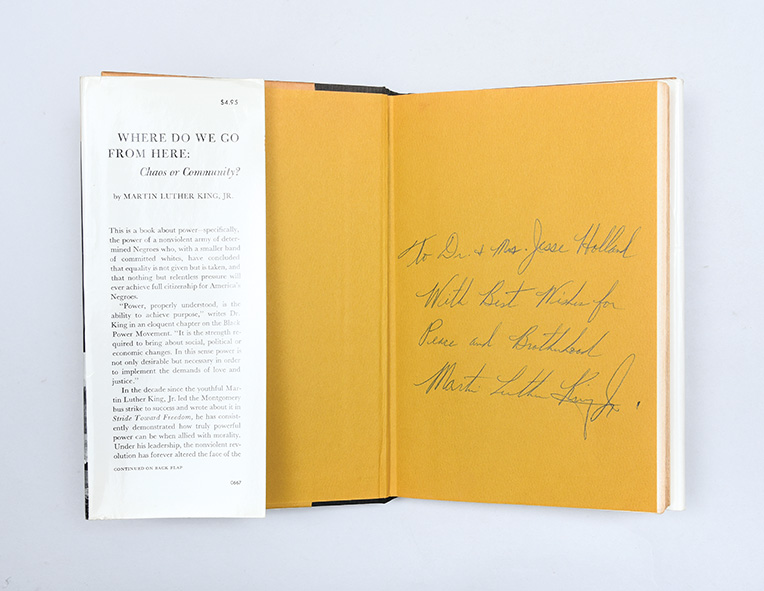 $4.95
WHERE DO WE GO
FROM HERE:
Chaos or Community?
by MARTIN LUTHER KING, JR.
This is a book about power—specifically,
the power of a nonviolent army of deter-
mined Negroes who, with a smaller band
of committed whites, have concluded
that equality is not given but is taken, and
that nothing but relentless pressure will
ever achieve full citizenship for America's
Negroes.
"Power, properly understood, is the
ability to achieve purpose," writes Dr.
King in an eloquent chapter on the Black
Power Movement. "It is the strength re-
quired to bring about social, political or
economic changes. In this sense power is
not only desirable but necessary in order
to implement the demands of love and
justice."
In the decade since the youthful Mar-
tin Luther King, Jr. led the Montgomery
bus strike to success and wrote about it in
Stride Toward Freedom, he has consist-
ently demonstrated how truly powerful
power can be when allied with morality.
Under his leadership, the nonviolent rev-
olution has forever altered the face of the
CONTINUED ON BACK FLAP
0667
To Dr. & Mrs. Jesse Holland
With Best Wishes for
Peace and Brotherhood
Martin Luther King Jr.